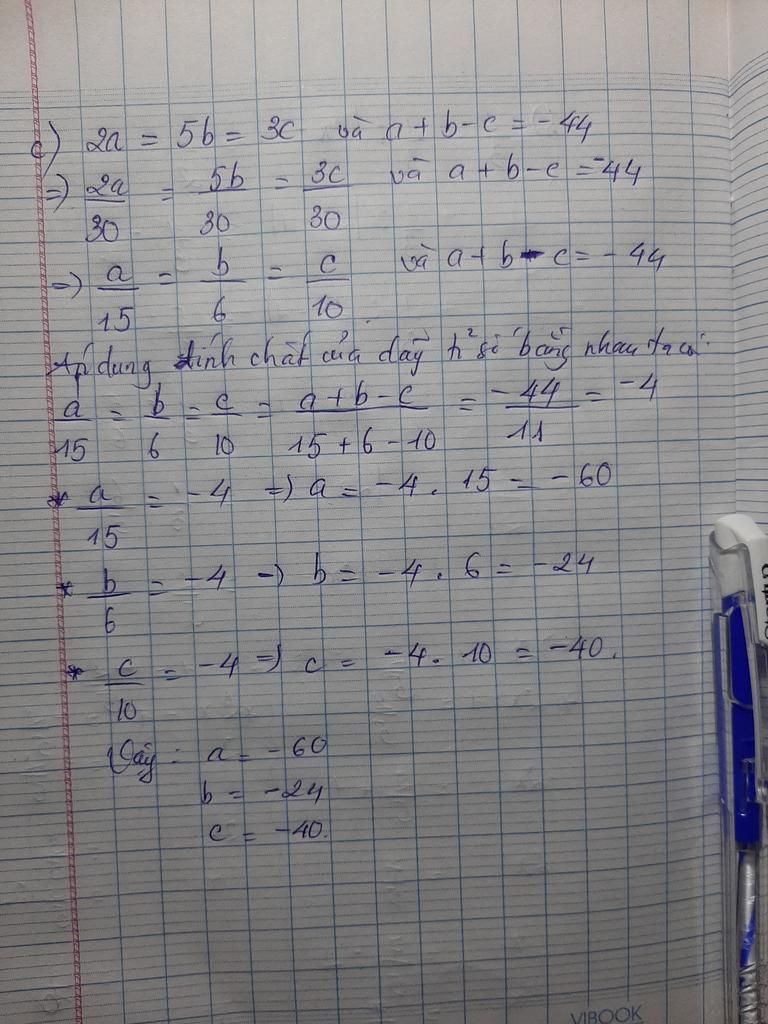 c) 2a = 5b = 3c và a + b - c = -44
=> 2a/30 = 5b/30 = 3c/30 và a + b - c = -44
=> a/15 = b/6 = c/10 và a + b - c = -44
Áp dụng tính chất của dãy tỉ số bằng nhau ta có:
a/15 = b/6 = c/10 = a + b - c/15 + 6 - 10 = -44/11 = -4
* a/15 = -4 => a = -4. 15 = -60
* b/6 = -4 => b = -4. 6 = -24
* c/10 = -4 => c = -4. 10 = -40.
Vậy: a = -60
b = -24
c = -40.
VIBOOK